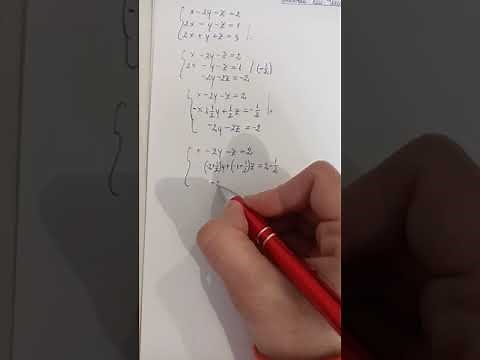 x - 2y - z = 2
2x - y - z = 1
2x + y + z = 3
x - 2y - z = 2
2x - y - z = 1 | (-1/2)
-2y - 2z = -2
x - 2y - z = 2
-x + 1/2y + 1/2z = -1/2
-2y - 2z = -2
x - 2y - z = 2
(-2+1/2)y + (-1+1/2)z = 2 - 1/2